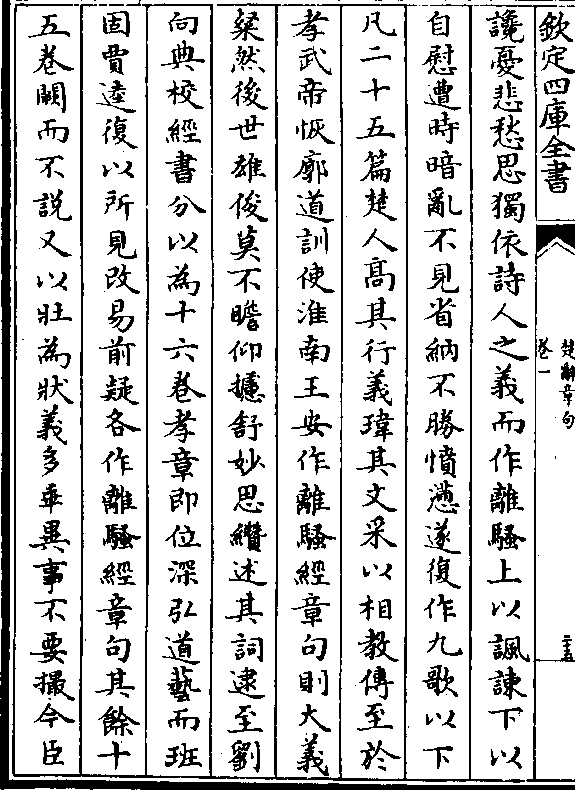 欽定四庫全書
楚辭章句
卷一
二十五
讒憂悲愁思獨依詩人之義而作離騷上以諷諫下以
自慰遭時暗亂不見省納不勝憤懣遂復作九歌以下
凡二十五篇楚人高其行義瑋其文采以相教傳至於
孝武帝恢廓道訓使淮南王安作離騷經章句則大義
粲然後世雄俊莫不瞻仰攄舒妙思纘述其詞逮至劉
向典校經書分以為十六卷孝章即位深弘道藝而班
固賈逵復以所見改易前疑各作離騷經章句其餘十
五卷闕而不說又以壯為狀義多乖異事不要撮今臣